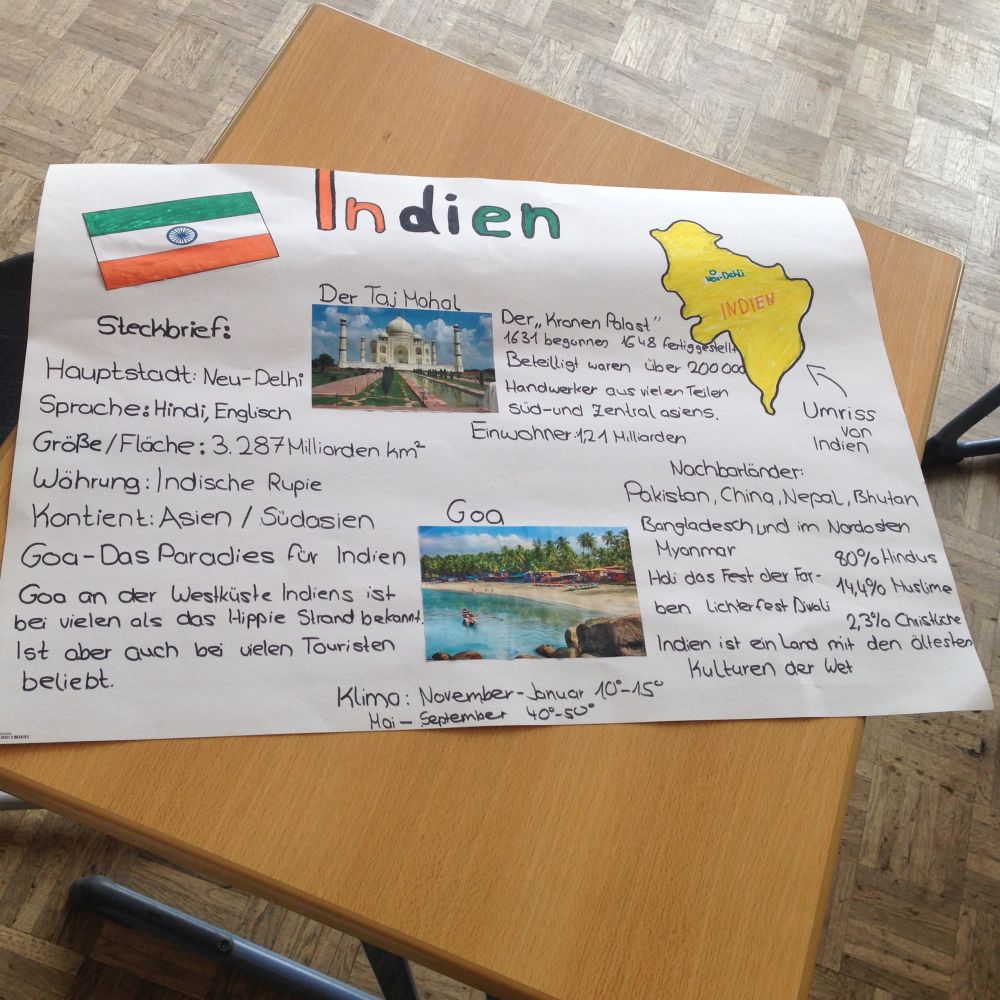 Indien
Der Taj Mahal
Der „Kronen Palast"
1631 begonnen 1648 fertiggestellt
Beteiligt waren über 200000
Handwerker aus vielen Teilen
süd-und Zentral asiens.
Einwohner:1,21 Milliarden
Neu-Dehli
INDIEN
Umriss
von
Indien
Steckbrief:
Hauptstadt: Neu-Delhi
Sprache: Hindi, Englisch
Größe/Fläche: 3.287 Milliarden km²
Währung: Indische Rupie
Kontient: Asien / Südasien
Goa-Das Paradies für Indien
Goa an der Westküste Indiens ist
bei vielen als das Hippie Strand bekannt.
Ist aber auch bei vielen Touristen
beliebt.
Goa
Nachbarländer:
Pakistan, China, Nepal, Bhutan
Bangladesch und im Nordosten
Myanmar
Holi das Fest der Far-
ben Lichterfest Diwali
80% Hindus
14,4% Muslime
2,3% Christliche
Indien ist ein Land mit den ältesten
Kulturen der Wet
Klima: November-Januar 10°-15°
Mai - September 40°-50°